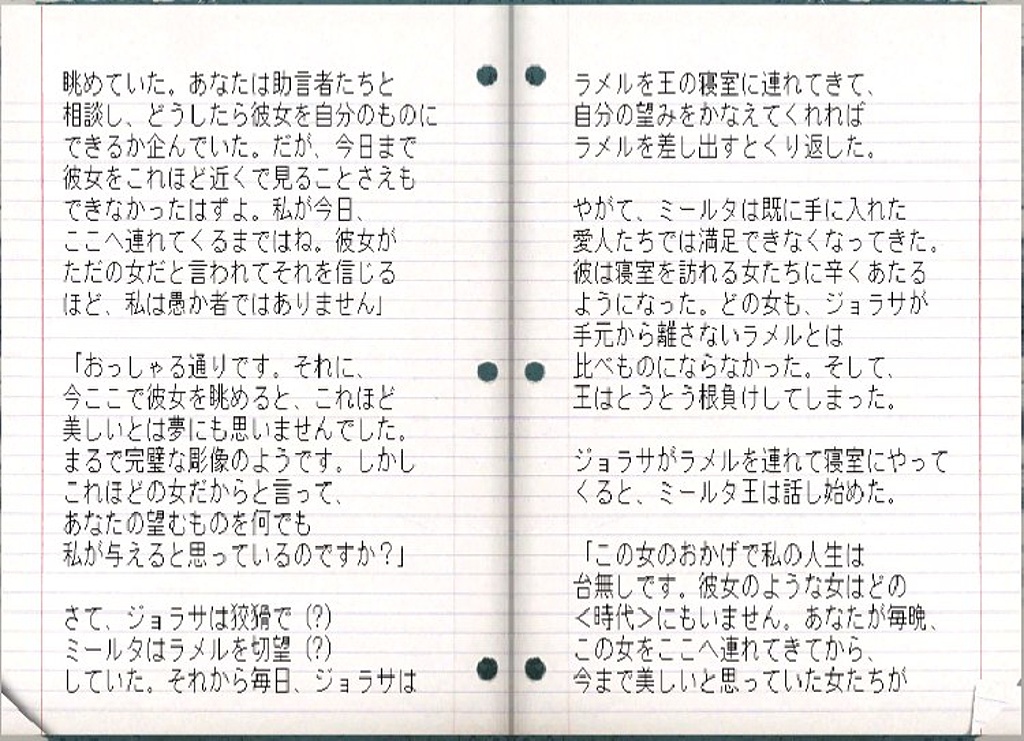 眺めていた。あなたは助言者たちと
相談し、どうしたら彼女を自分のものに
できるか企んでいた。だが、今日まで
彼女をこれほど近くで見ることさえも
できなかったはずよ。私が今日、
ここへ連れてくるまではね。彼女が
ただの女だと言われてそれを信じる
ほど、私は愚か者ではありません」
「おっしゃる通りです。それに、
今ここで彼女を眺めると、これほど
美しいとは夢にも思いませんでした。
まるで完璧な彫像のようです。しかし
これほどの女だからと言って、
あなたの望むものを何でも
私が与えると思っているのですか？」
さて、ジョラサは狡猾で（？）
ミールタはラメルを切望（？）
していた。それから毎日、ジョラサは
ラメルを王の寝室に連れてきて、
自分の望みをかなえてくれれば
ラメルを差し出すとくり返した。
やがて、ミールタは既に手に入れた
愛人たちでは満足できなくなってきた。
彼は寝室を訪れる女たちに辛くあたる
ようになった。どの女も、ジョラサが
手元から離さないラメルとは
比べものにならなかった。そして、
王はとうとう根負けしてしまった。
ジョラサがラメルを連れて寝室にやって
くると、ミールタ王は話し始めた。
「この女のおかげで私の人生は
台無しです。彼女のような女はどの
＜時代＞にもいません。あなたが毎晩、
この女をここへ連れてきてから、
今まで美しいと思っていた女たちが